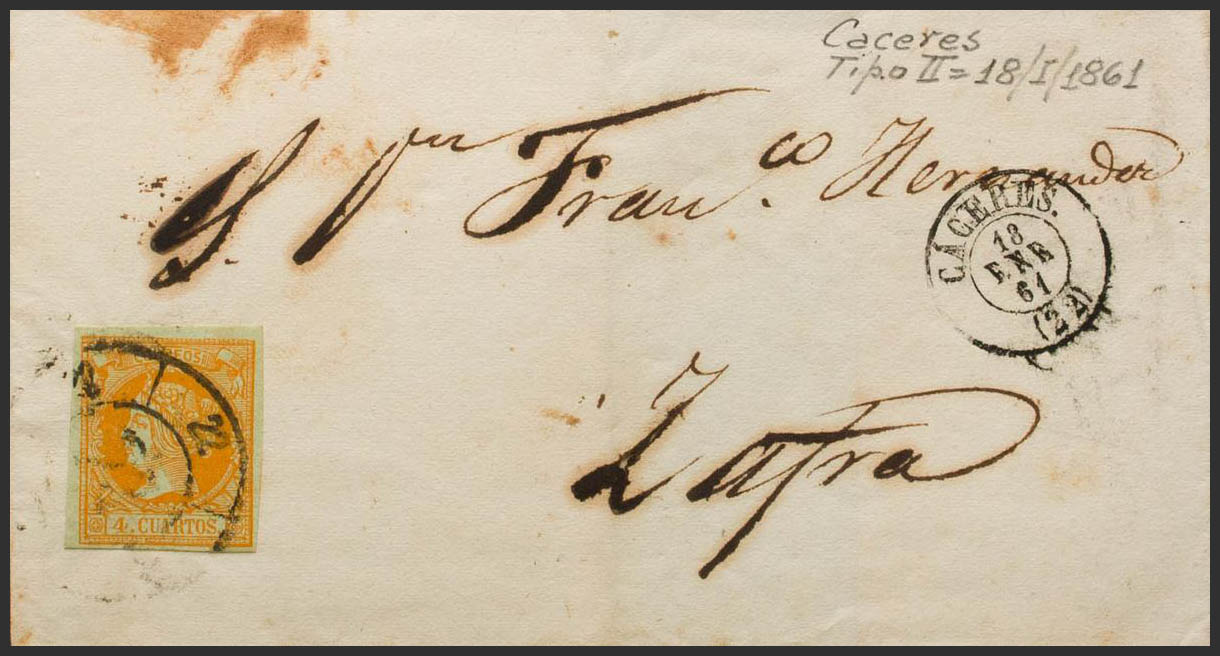 Caceres
Tipo II = 18/I/1861
S. Dn Franco. Hernandez
CÁCERES.
18
ENE
61
(22)
CORREOS
22
4 CUARTOS
Zafra